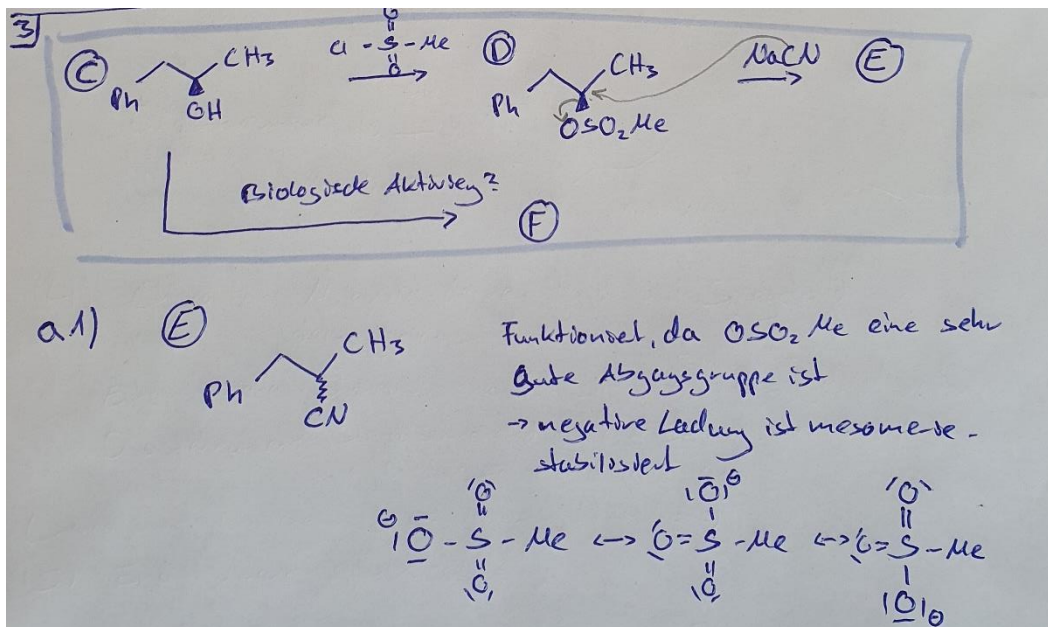 3]
Ⓒ Ph CH3 OH
Cl-S-Me O O
Ⓓ Ph CH3 OSO2Me
NaCN
Ⓔ
Biologische Aktivität?
Ⓕ
a.1) Ⓔ Ph CH3 CN
Funktioniert, da OSO2Me eine sehr
gute Abgangsgruppe ist
→ negative Ladung ist mesomerie-
stabilisiert
⊖ O-S-Me O O ↔ O=S-Me O⊖ O ↔ O=S-Me O O⊖